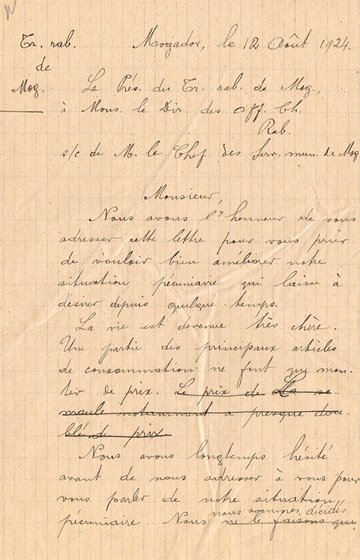 Tr. rab.
de
Mog.
Mogador, le 12 Août 1924.
Le Prés. du Tr. rab. de Mog.,
à Mons. le Dir. des Aff. Ch.
Rab.
s/c de M. le Chef des Serv. mun. de Mog
Monsieur,
Nous avons l'honneur de vous
adresser cette lettre pour vous prier
de vouloir bien améliorer notre
situation pécuniaire qui laisse à
désirer depuis quelque temps.
La vie est devenue très chère.
Une partie des principaux articles
de consommation ne font que mon-
ter de prix. Le prix de La se-
moule notamment a presque dou-
blé de prix.
Nous avons longtemps hésité
avant de nous adresser à vous pour
vous parler de notre situation
nous sommes décidés
pécuniaire. Nous ne le faisons que